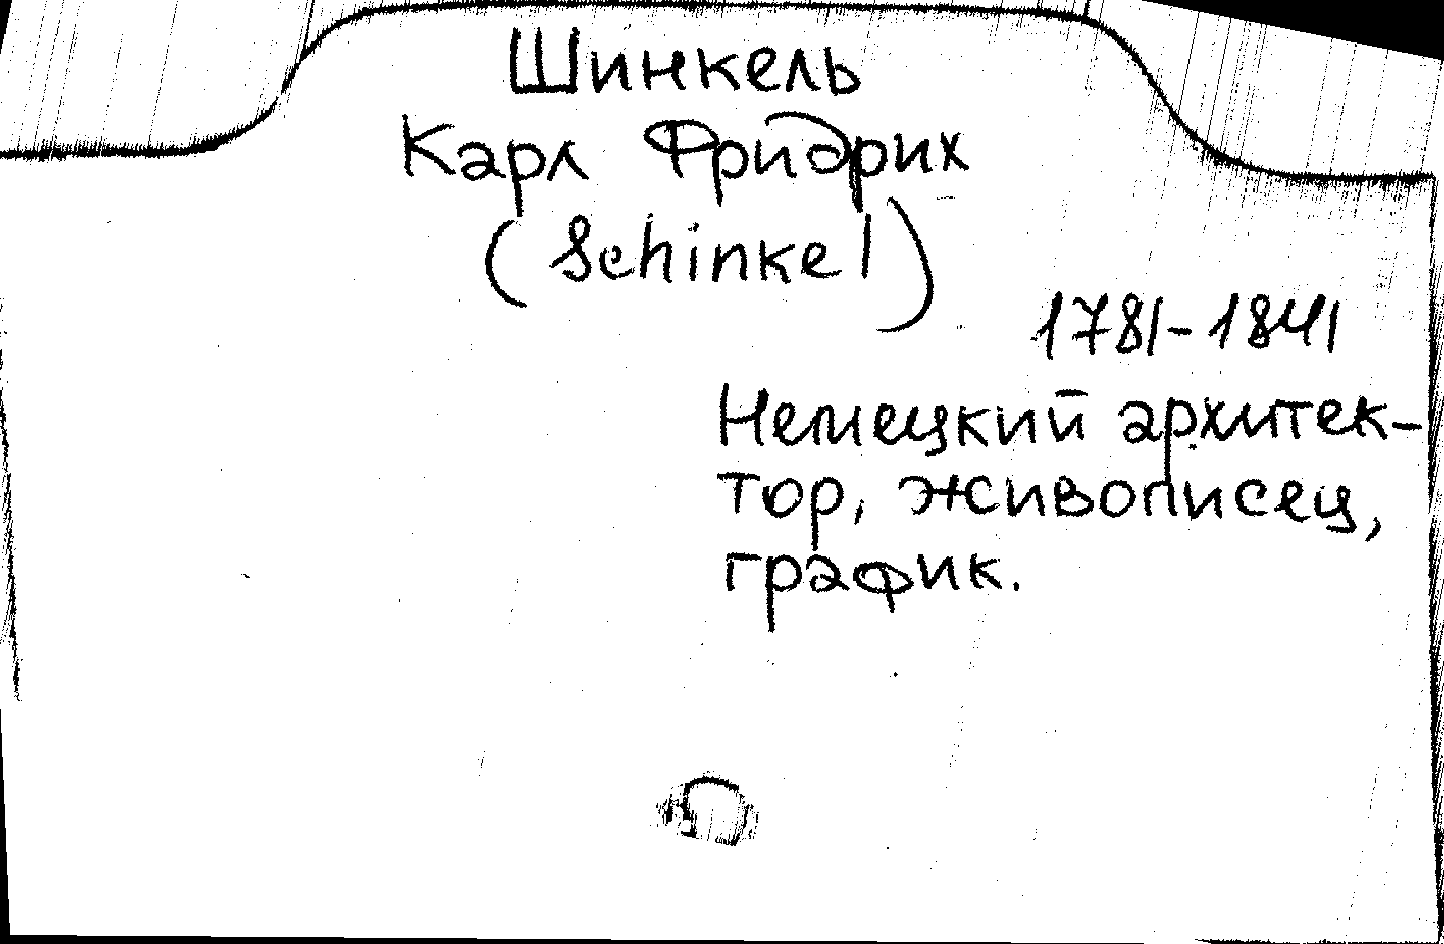 Шинкель
Карл Фридрих
(Schinkel)
1781-1841
Немецкий архитек-
тор, живописец,
график.